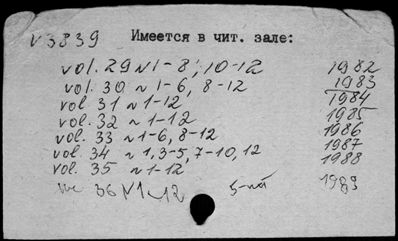 v3839 Имеется в чит. зале:
vol. 29 N 1-8; 10-12 1982
vol. 30 ~ 1-6, 8-12 1983
vol 31 ~ 1-12 1984
vol. 32 ~ 1-12 1985
vol. 33 ~ 1-6, 8-12 1986
vol. 34 ~ 1,3-5,7-10,12 1987
vol. 35 ~ 1-12 1988
36 N 1-12 1989